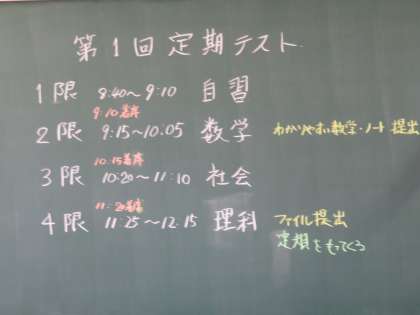 第1回定期テスト
1限 8:40～9:10 自習
9:10着席
2限 9:15～10:05 数学 わかりやすい数学・ノート提出
10:15着席
3限 10:20～11:10 社会
11:20着席
4限 11:25～12:15 理科 ファイル提出
定規をもってくる